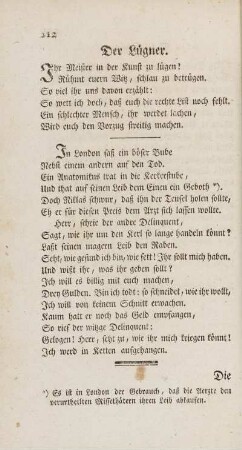 212
Der Lügner.
Ihr Meister in der Kunst zu lügen!
Rühmt euern Witz, schlau zu betrügen.
So viel ihr uns davon erzählt:
So wett ich doch, daß euch die rechte List noch fehlt.
Ein schlechter Mensch, ihr werdet lachen,
Wird euch den Vorzug streitig machen.
In London saß ein böser Bube
Nebst einem andern auf den Tod.
Ein Anatomikus trat in die Kerkerstube,
Und that auf seinen Leib dem Einen ein Geboth *).
Doch Niklas schwur, daß ihn der Teufel holen sollte,
Eh er für diesen Preis dem Arzt sich lassen wollte.
Herr, schrie der andre Delinquent,
Sagt, wie ihr um den Kerl so lange handeln könnt!
Laßt seinen magern Leib den Raben.
Seht, wie gesund ich bin, wie fett! Ihr sollt mich haben.
Und wißt ihr, was ihr geben sollt?
Ich will es billig mit euch machen,
Drey Gulden. Bin ich todt: so schneidet, wie ihr wollt,
Ich will von keinem Schnitt erwachen.
Kaum hatt er noch das Geld empfangen,
So rief der witzge Delinquent:
Gelogen! Herr, seht zu, wie ihr mich kriegen könnt!
Ich werd in Ketten aufgehangen.
Die
*) Es ist in London der Gebrauch, daß die Aerzte den
verurtheilten Missethätern ihren Leib abkaufen.